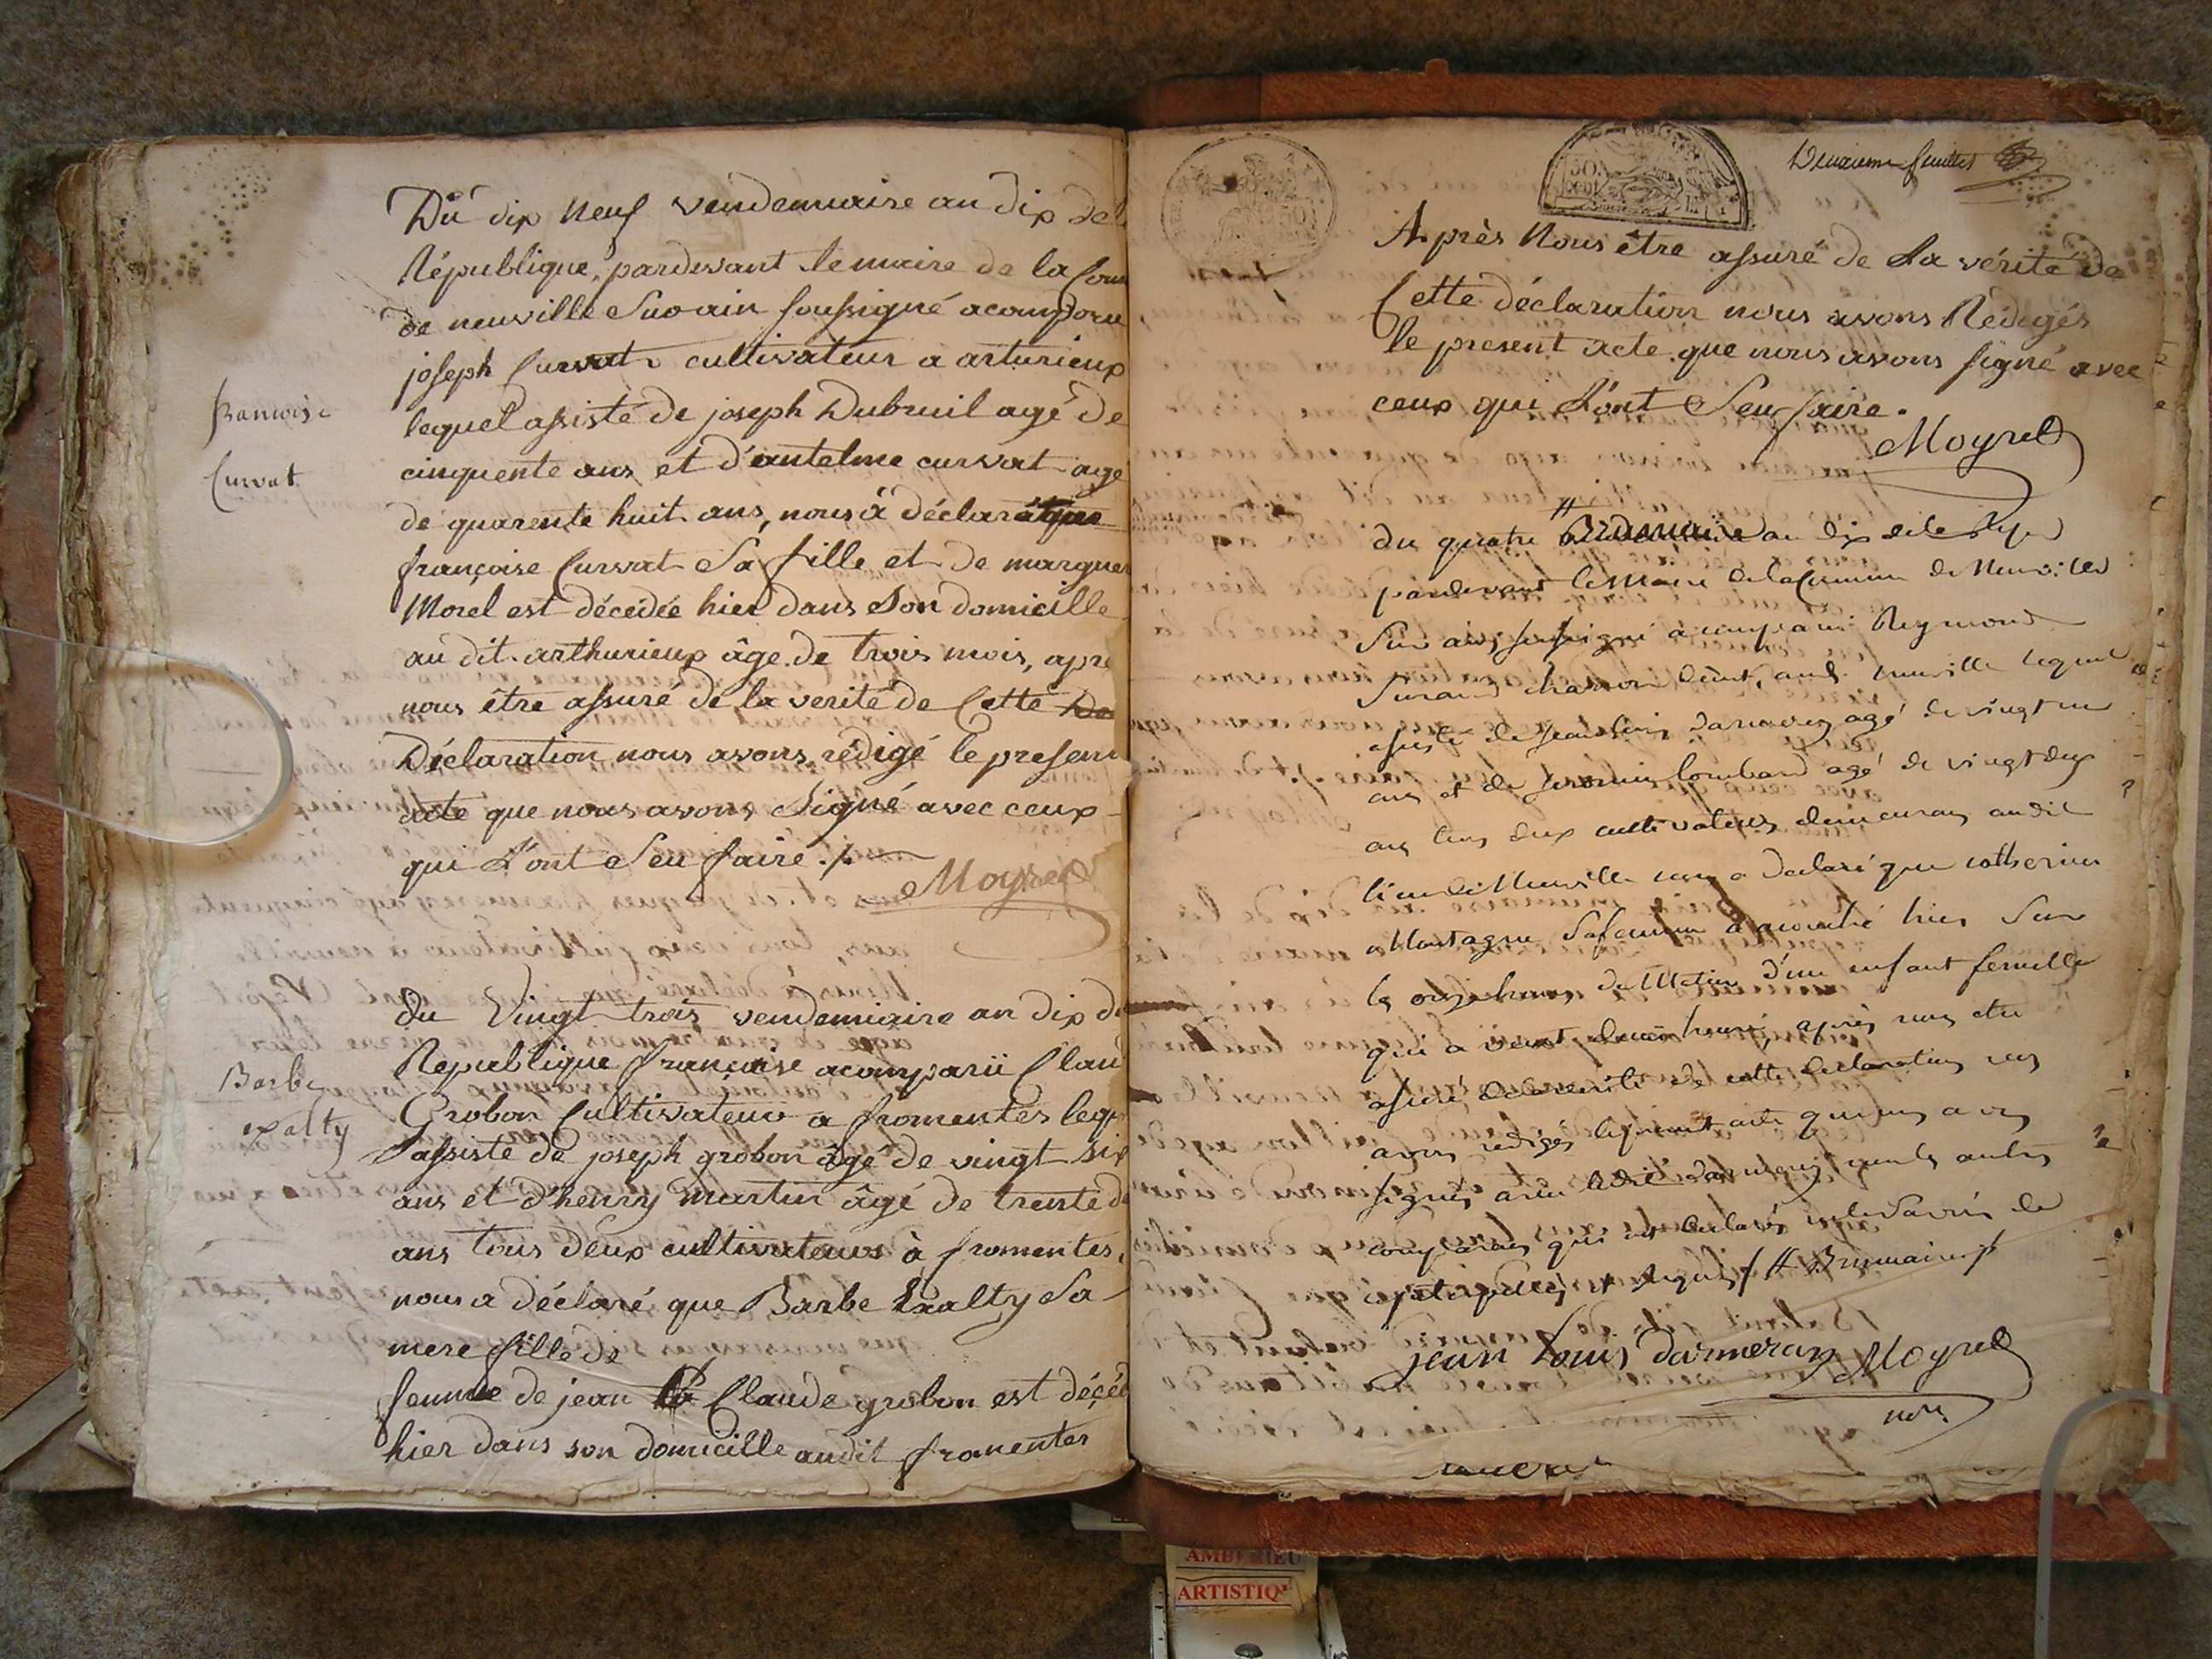 Du dix neuf vendemiaire an dix de
République, pardevant le maire de la Com
de neuville Sur ain soussigné a comparu
joseph Curvat cultivateur a arturieux
francoise
lequel assisté de joseph Dubreuil agé de
cinquente ans et d'antelme curvat age
Curvat
de quarente huit ans, nous à déclaré que
françoise Curvat Sa fille et de margue
Morel est décédée hier dans Son domicille
au dit arthurieux âge de trois mois, apre
nous être assuré de la verité de Cette De
Déclaration nous avons rédigé le presen
acte que nous avons Signé avec ceux
qui L'ont Seu faire ./.
Moyret
du Vingt trois vendemiaire an dix d
Republique française acomparü Clau
Barbe
Grobon Cultivateur a fromentes leq
exalty
assisté de joseph grobon âgé de vingt six
ans et d'henry martin âgé de trente d
ans tous deux cultivateurs à fromentes,
nous a déclaré que Barbe Exalty Sa
mere fille de
femme de jean Claude grobon est décéd
hier dans son domicille audit fromentes
Deuxieme feuillet
50
Après Nous être assuré de La vérité de
Cette déclaration nous avons Rédigés
le present acte que nous avons signé avec
ceux qui L'ont Seu faire.
Moyret
du quatre Brumaire an dix de la Rep
pardevant le Maire de la Commune de Neuville
Sur ain soussigné a comparu Reymond
charron audit neuville lequel
assisté de Jean louis Darmeran agé de vingt un
ans et de lombard agé de vingt deux
ans tous deux cultivateurs demeurans audit
lieu de Neuville nous a declaré que catherine
Montagne Sa femme a accouché hier Sur
les onze heures du Matin d'un enfant femelle
qui a vecut demi heure, après nous etre
assuré de la verité de cette declaration nous
avons redigés le present acte que nous avons
signés avec ledit darmeran non les autres
comparans qui ont declarés ne le Savoir de
ce enquis et requis / # Brumaire /
jean Louis Darmeran Moyret